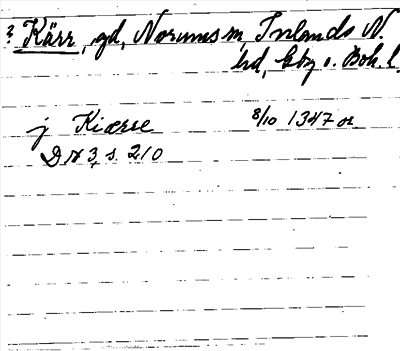 ? Kärr, gd, Norums sn, Inlands N.
hd, Gbg o. Boh. l.
j Kiærre 8/10 1347 or.
DN 3, s. 210